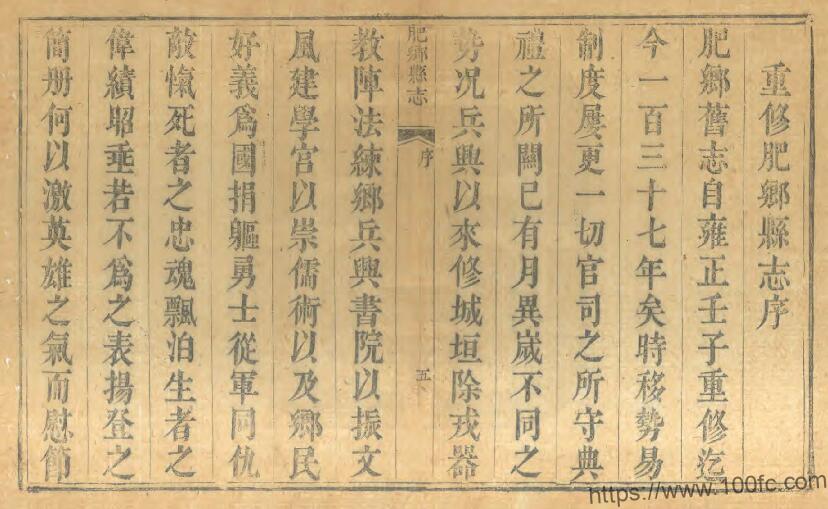 重修肥鄉縣志序
肥鄉舊志自雍正壬子重修迄
今一百三十七年矣時移勢易
制度屢更一切官司之所守典
禮之所關已有月異歲不同之
勢况兵興以來修城垣除戎器
肥鄉縣志 序 五
教陣法練鄉兵興書院以振文
風建學宮以崇儒術以及鄉民
好義爲國捐軀勇士從軍同仇
敵愾死者之忠魂飄泊生者之
偉績昭垂若不爲之表揚登之
簡册何以激英雄之氣而慰節
https://www.100fc.com